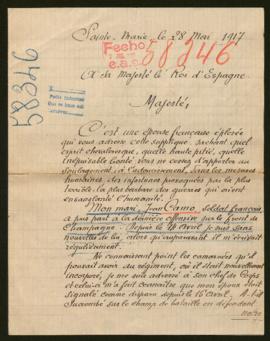 Sainte Marie, le 28 Mai 1917
Fecho
58246
e.a.
58246
A sa Majesté le Roi d'Espagne.
Majesté,
C'est une épouse française éplorée
qui vous adresse cette supplique, sachant quel
esprit chevaleresque, quelle haute pitié, quelle
inépuisable bonté vous ne cessez d'apporter au
soulagement, à l'adoucissement, des misères
humaines, des infortunes provoquées par la plus
terrible, la plus barbare des guerres qui aient
ensanglanté l'humanité.
Mon mari, Jean Camo, Soldat français
a pris part à la dernière offensive sur le front de
Champagne. Depuis le 14 Avril je suis sans
nouvelles de lui, alors qu'auparavant il m'écrivait
régulièrement.
Ne connaissant point les camarades qu'il
pouvait avoir au régiment, où il était nouvellement
incorporé, je me suis adressée à son chef de Corps
et celui-ci m'a fait connaître que mon époux était
signalé comme disparu depuis le 16 Avril. A-t-il
succombé sur le champ de bataille en défendant